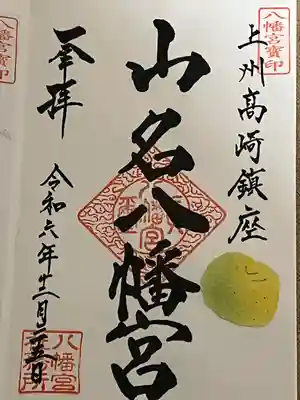 八幡宮寶印
上州高崎鎮座
山名八幡宮
奉拝
令和六年十二月二十五日
八幡宮